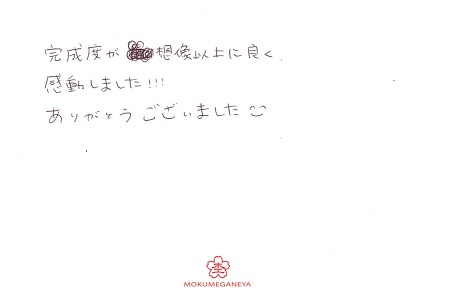 完成度が想像以上に良く
感動しました!!!
ありがとうございました
MOKUMEGANEYA